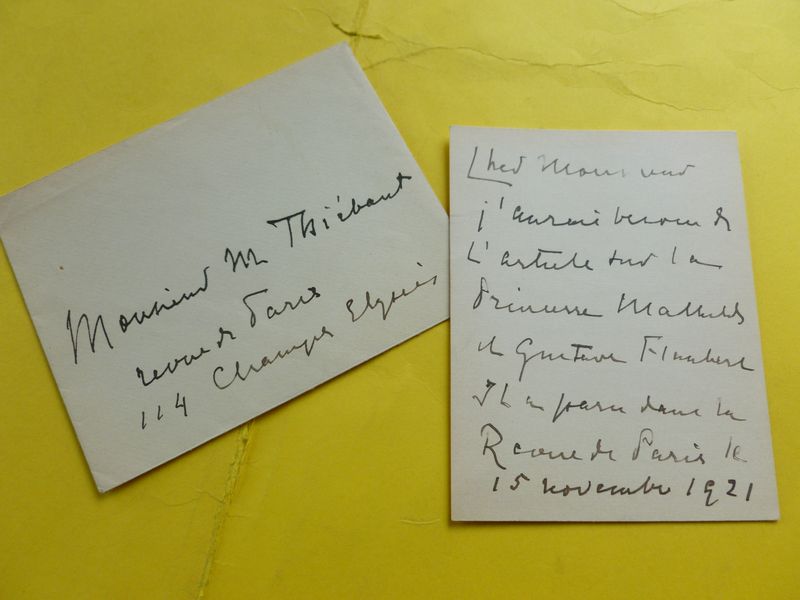 Monsieur M Thiébaut
revue de Paris
114 Champs Elysées
Cher Monsieur
j'aurais besoin de
L'article sur la
Princesse Mathilde
et Gustave Flaubert
Il a paru dans la
Revue de Paris le
15 novembre 1921